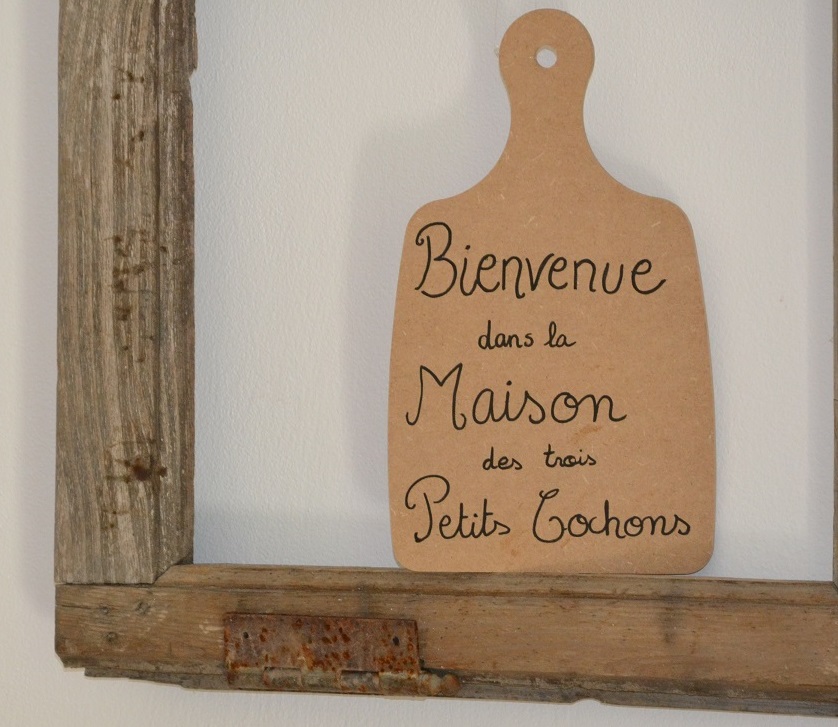 Bienvenue
dans la
Maison
des trois
Petits Cochons